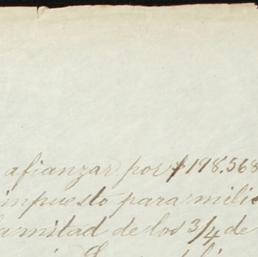 afianzar por $198.568
impuesto para milic
la mitad de los 3/4 de